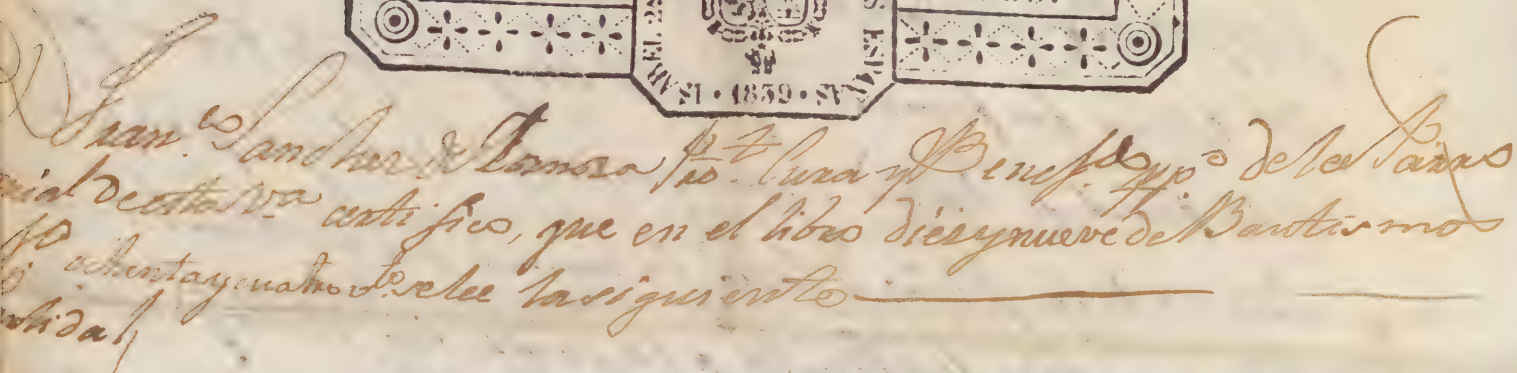 ISABEL 2ª ESPAÑAS · 1839 ·
D. Fran.co Sanchez de Pbro. Cura y Benef.do pp.o de la Parro
quial de esta V.a certifico, que en el libro diez y nueve de Bautismos
fo ochenta y cuatro v.to se lee la siguiente